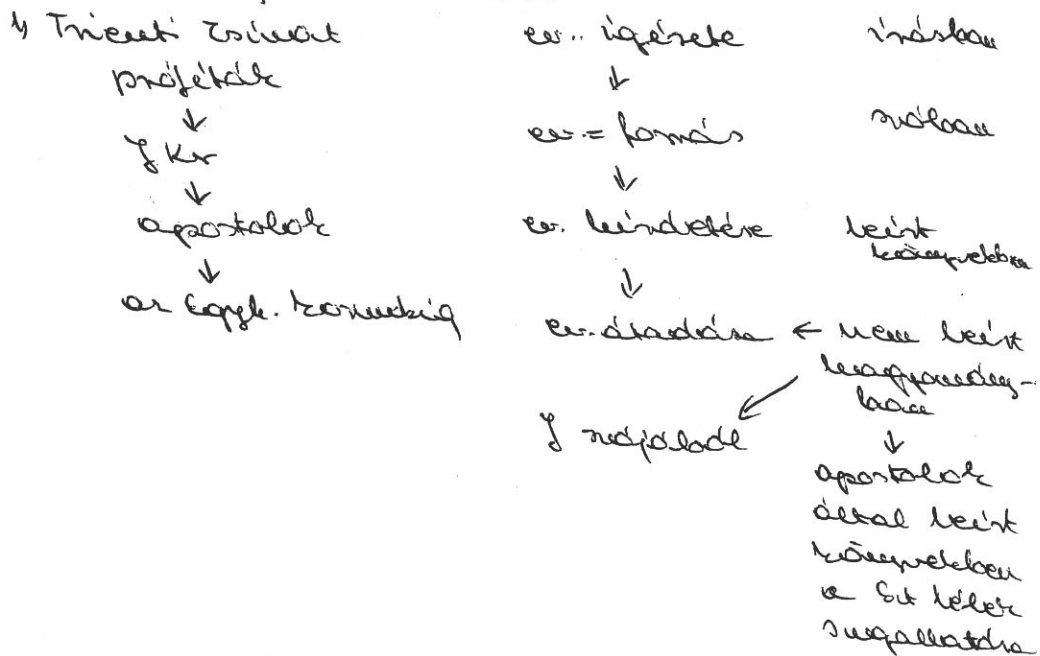 1, Trienti Zsinat
próféták
↓
J Kr
↓
apostolok
↓
az Egyh. korunkig
ev. ígérete
↓
ev. = forrás
↓
ev. hirdetése
↓
ev. átadása ← nem leírt
hagyomány-
ban
J szájából
írásban
szóban
leírt
könyvekben
↓
apostolok
által leírt
könyvekben
a Szt lélek
sugallatára